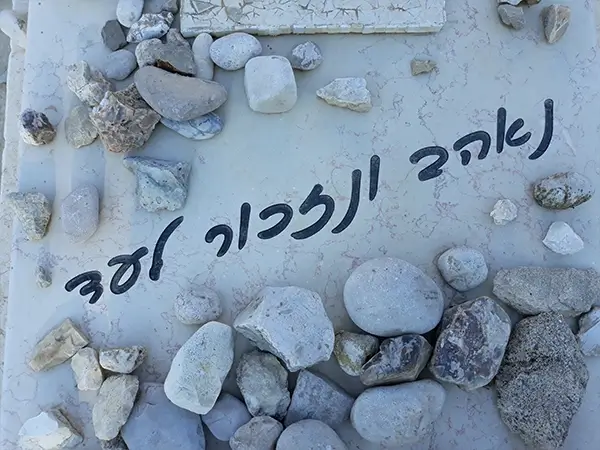 נאהב ונזכור לעד